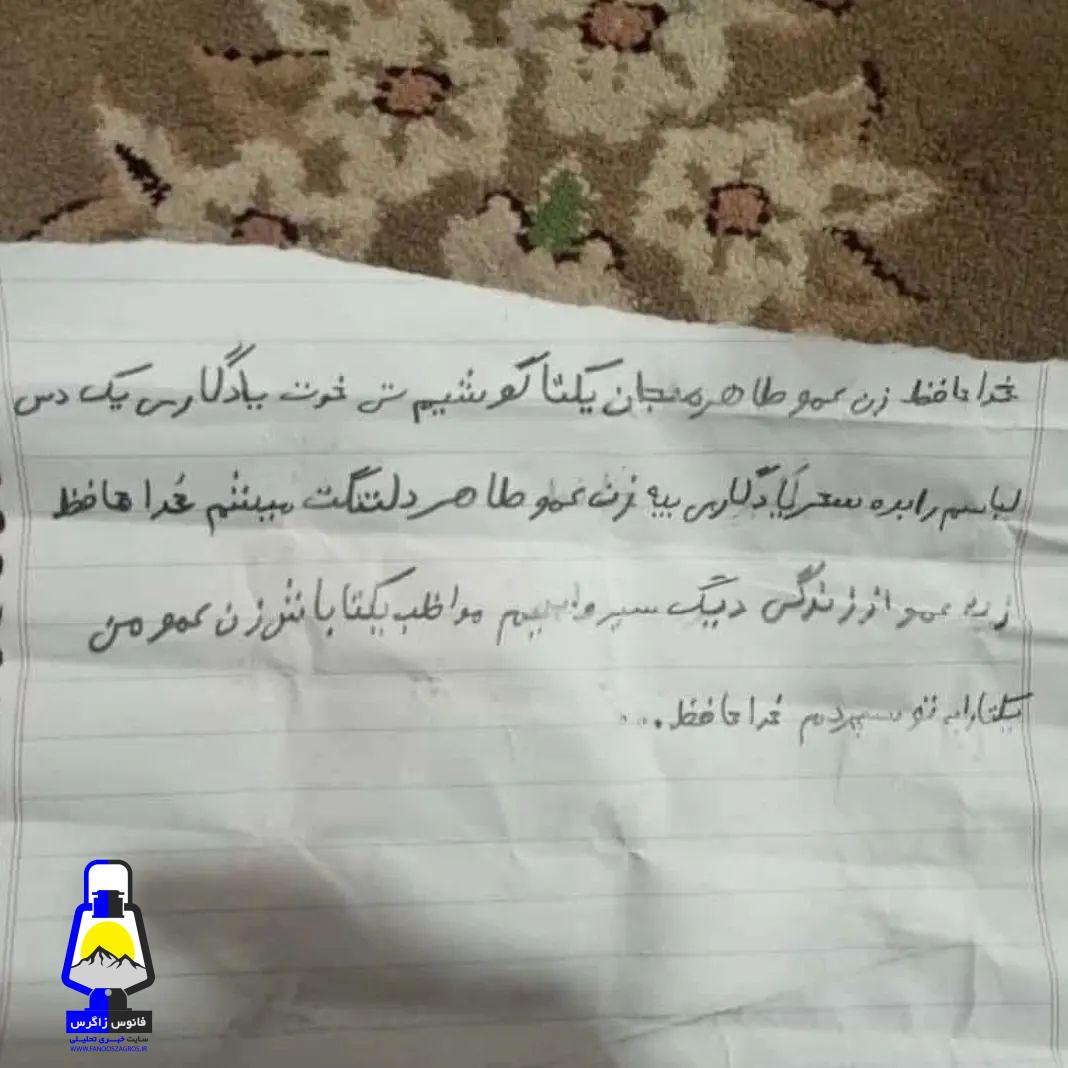 خداحافظ زن عمو طاهره منجان یکتا گوشیم تی خوت یادگاری یک دس
لباسم را بده سحر یادگاری بیه زن عمو طاهر دلتنگت میشم خدا حافظ
زن عمو از زندگی دیگ سیر وابیم مواظب یکتا باش زن عمو من
یکتا را به تو سپردم خداحافظ...
فانوس زاگرس
سایت خبری تحلیلی
WWW.FANOOSZAGROS.IR